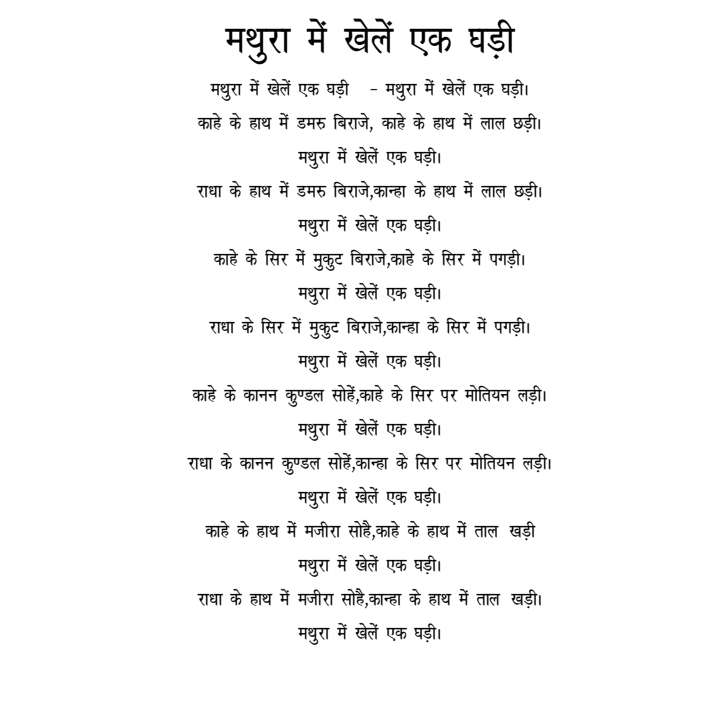 मथुरा में खेलें एक घड़ी
मथुरा में खेलें एक घड़ी - मथुरा में खेलें एक घड़ी।
काहे के हाथ में डमरु बिराजे, काहे के हाथ में लाल छड़ी।
मथुरा में खेलें एक घड़ी।
राधा के हाथ में डमरु बिराजे,कान्हा के हाथ में लाल छड़ी।
मथुरा में खेलें एक घड़ी।
काहे के सिर में मुकुट बिराजे,काहे के सिर में पगड़ी।
मथुरा में खेलें एक घड़ी।
राधा के सिर में मुकुट बिराजे,कान्हा के सिर में पगड़ी।
मथुरा में खेलें एक घड़ी।
काहे के कानन कुण्डल सोहें,काहे के सिर पर मोतियन लड़ी।
मथुरा में खेलें एक घड़ी।
राधा के कानन कुण्डल सोहें,कान्हा के सिर पर मोतियन लड़ी।
मथुरा में खेलें एक घड़ी।
काहे के हाथ में मजीरा सोहै,काहे के हाथ में ताल खड़ी
मथुरा में खेलें एक घड़ी।
राधा के हाथ में मजीरा सोहै,कान्हा के हाथ में ताल खड़ी।
मथुरा में खेलें एक घड़ी।